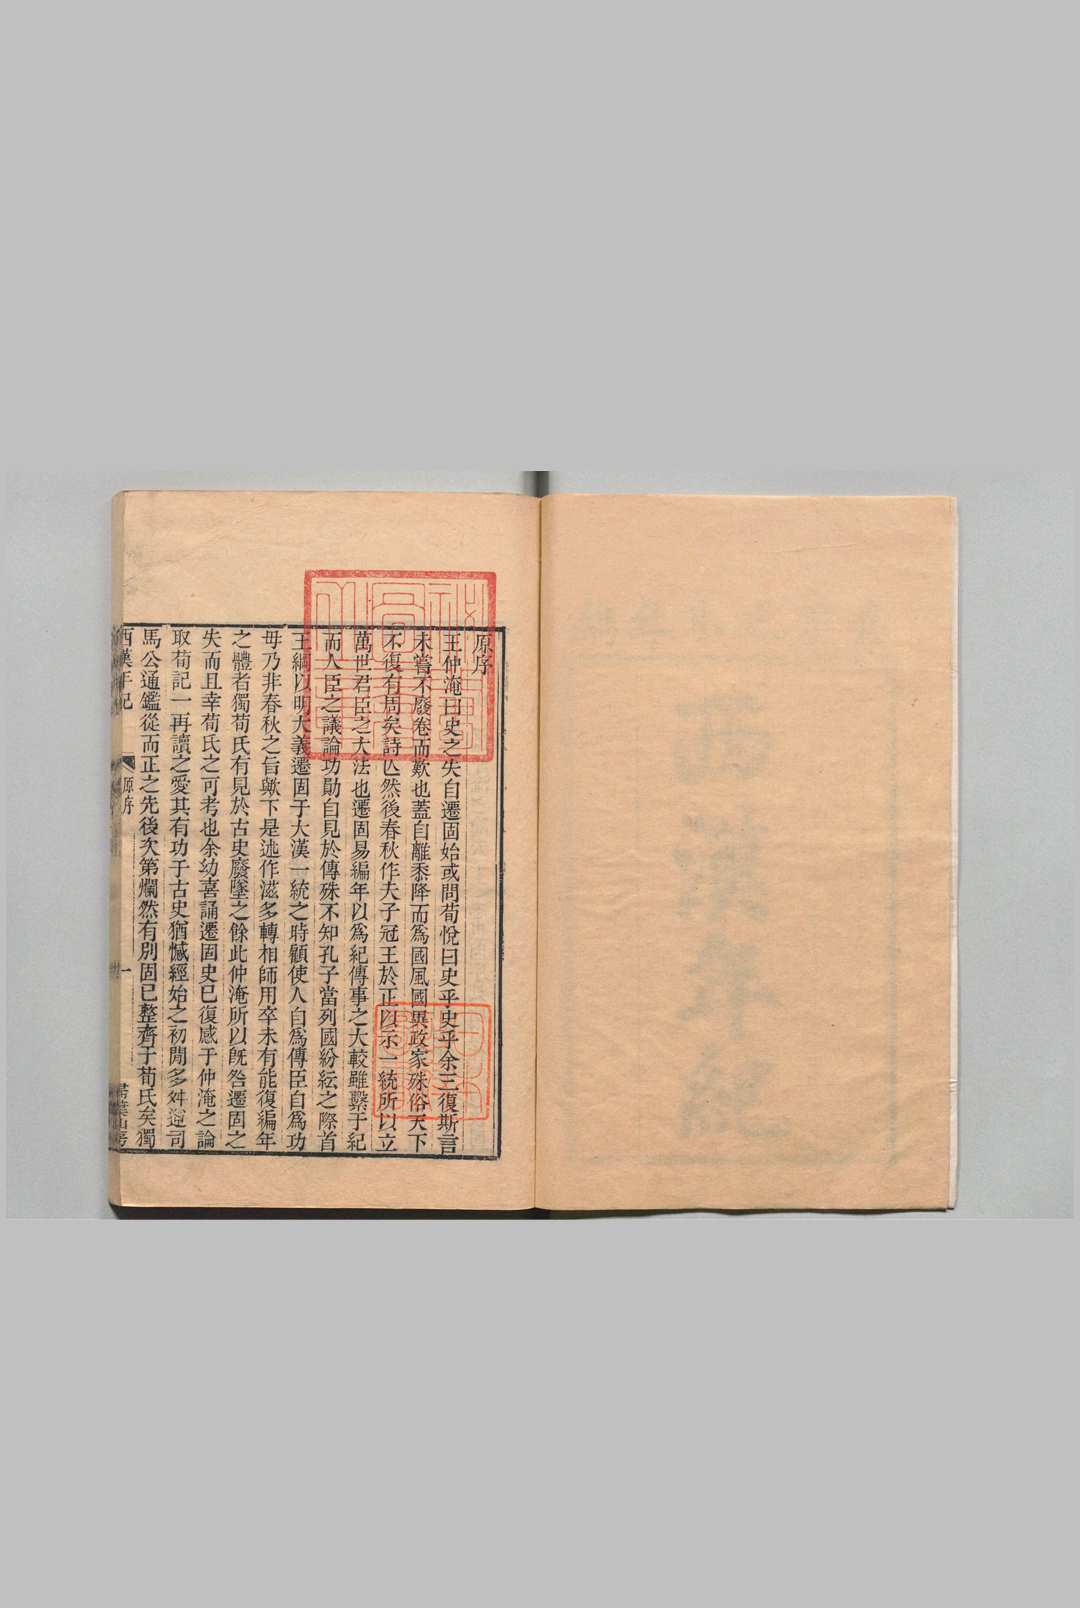 原序
王仲淹曰史之失自遷固始或問荀悅曰史乎史乎余三復斯言
未嘗不廢卷而歎也蓋自離黍降而爲國風國異政家殊俗天下
不復有周矣詩亾然後春秋作夫子冠王於正以示一統所以立
萬世君臣之大法也遷固易編年以爲紀傳事之大較雖繫于紀
而人臣之議論功勛自見於傳殊不知孔子當列國紛紜之際首
王綱以明大義遷固于大漢一統之時顧使人自爲傳臣自爲功
毋乃非春秋之旨歟下是述作滋多轉相師用卒未有能復編年
之體者獨荀氏有見於古史廢墜之餘此仲淹所以旣咎遷固之
失而且幸荀氏之可考也余幼喜誦遷固史已復感于仲淹之論
取荀記一再讀之愛其有功于古史猶憾經始之初閒多舛逆司
馬公通鑑從而正之先後次第爛然有別固已整齊于荀氏矣獨
西漢年紀 原序 一
西漢年紀